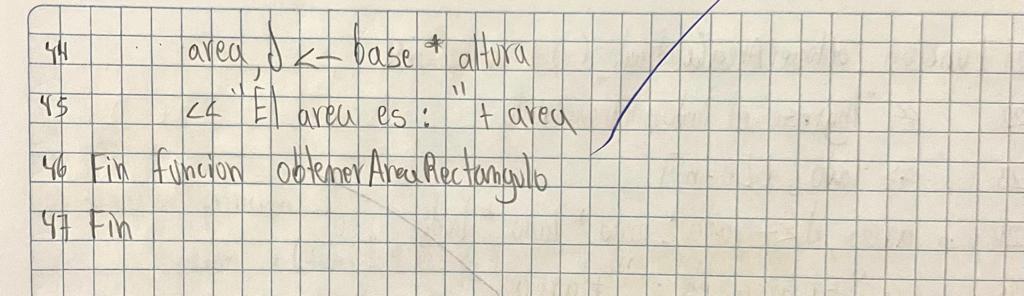 44 area, d <- base * altura
45 << "El area es: " + area
46 Fin funcion obtenerAreaRectangulo
47 Fin